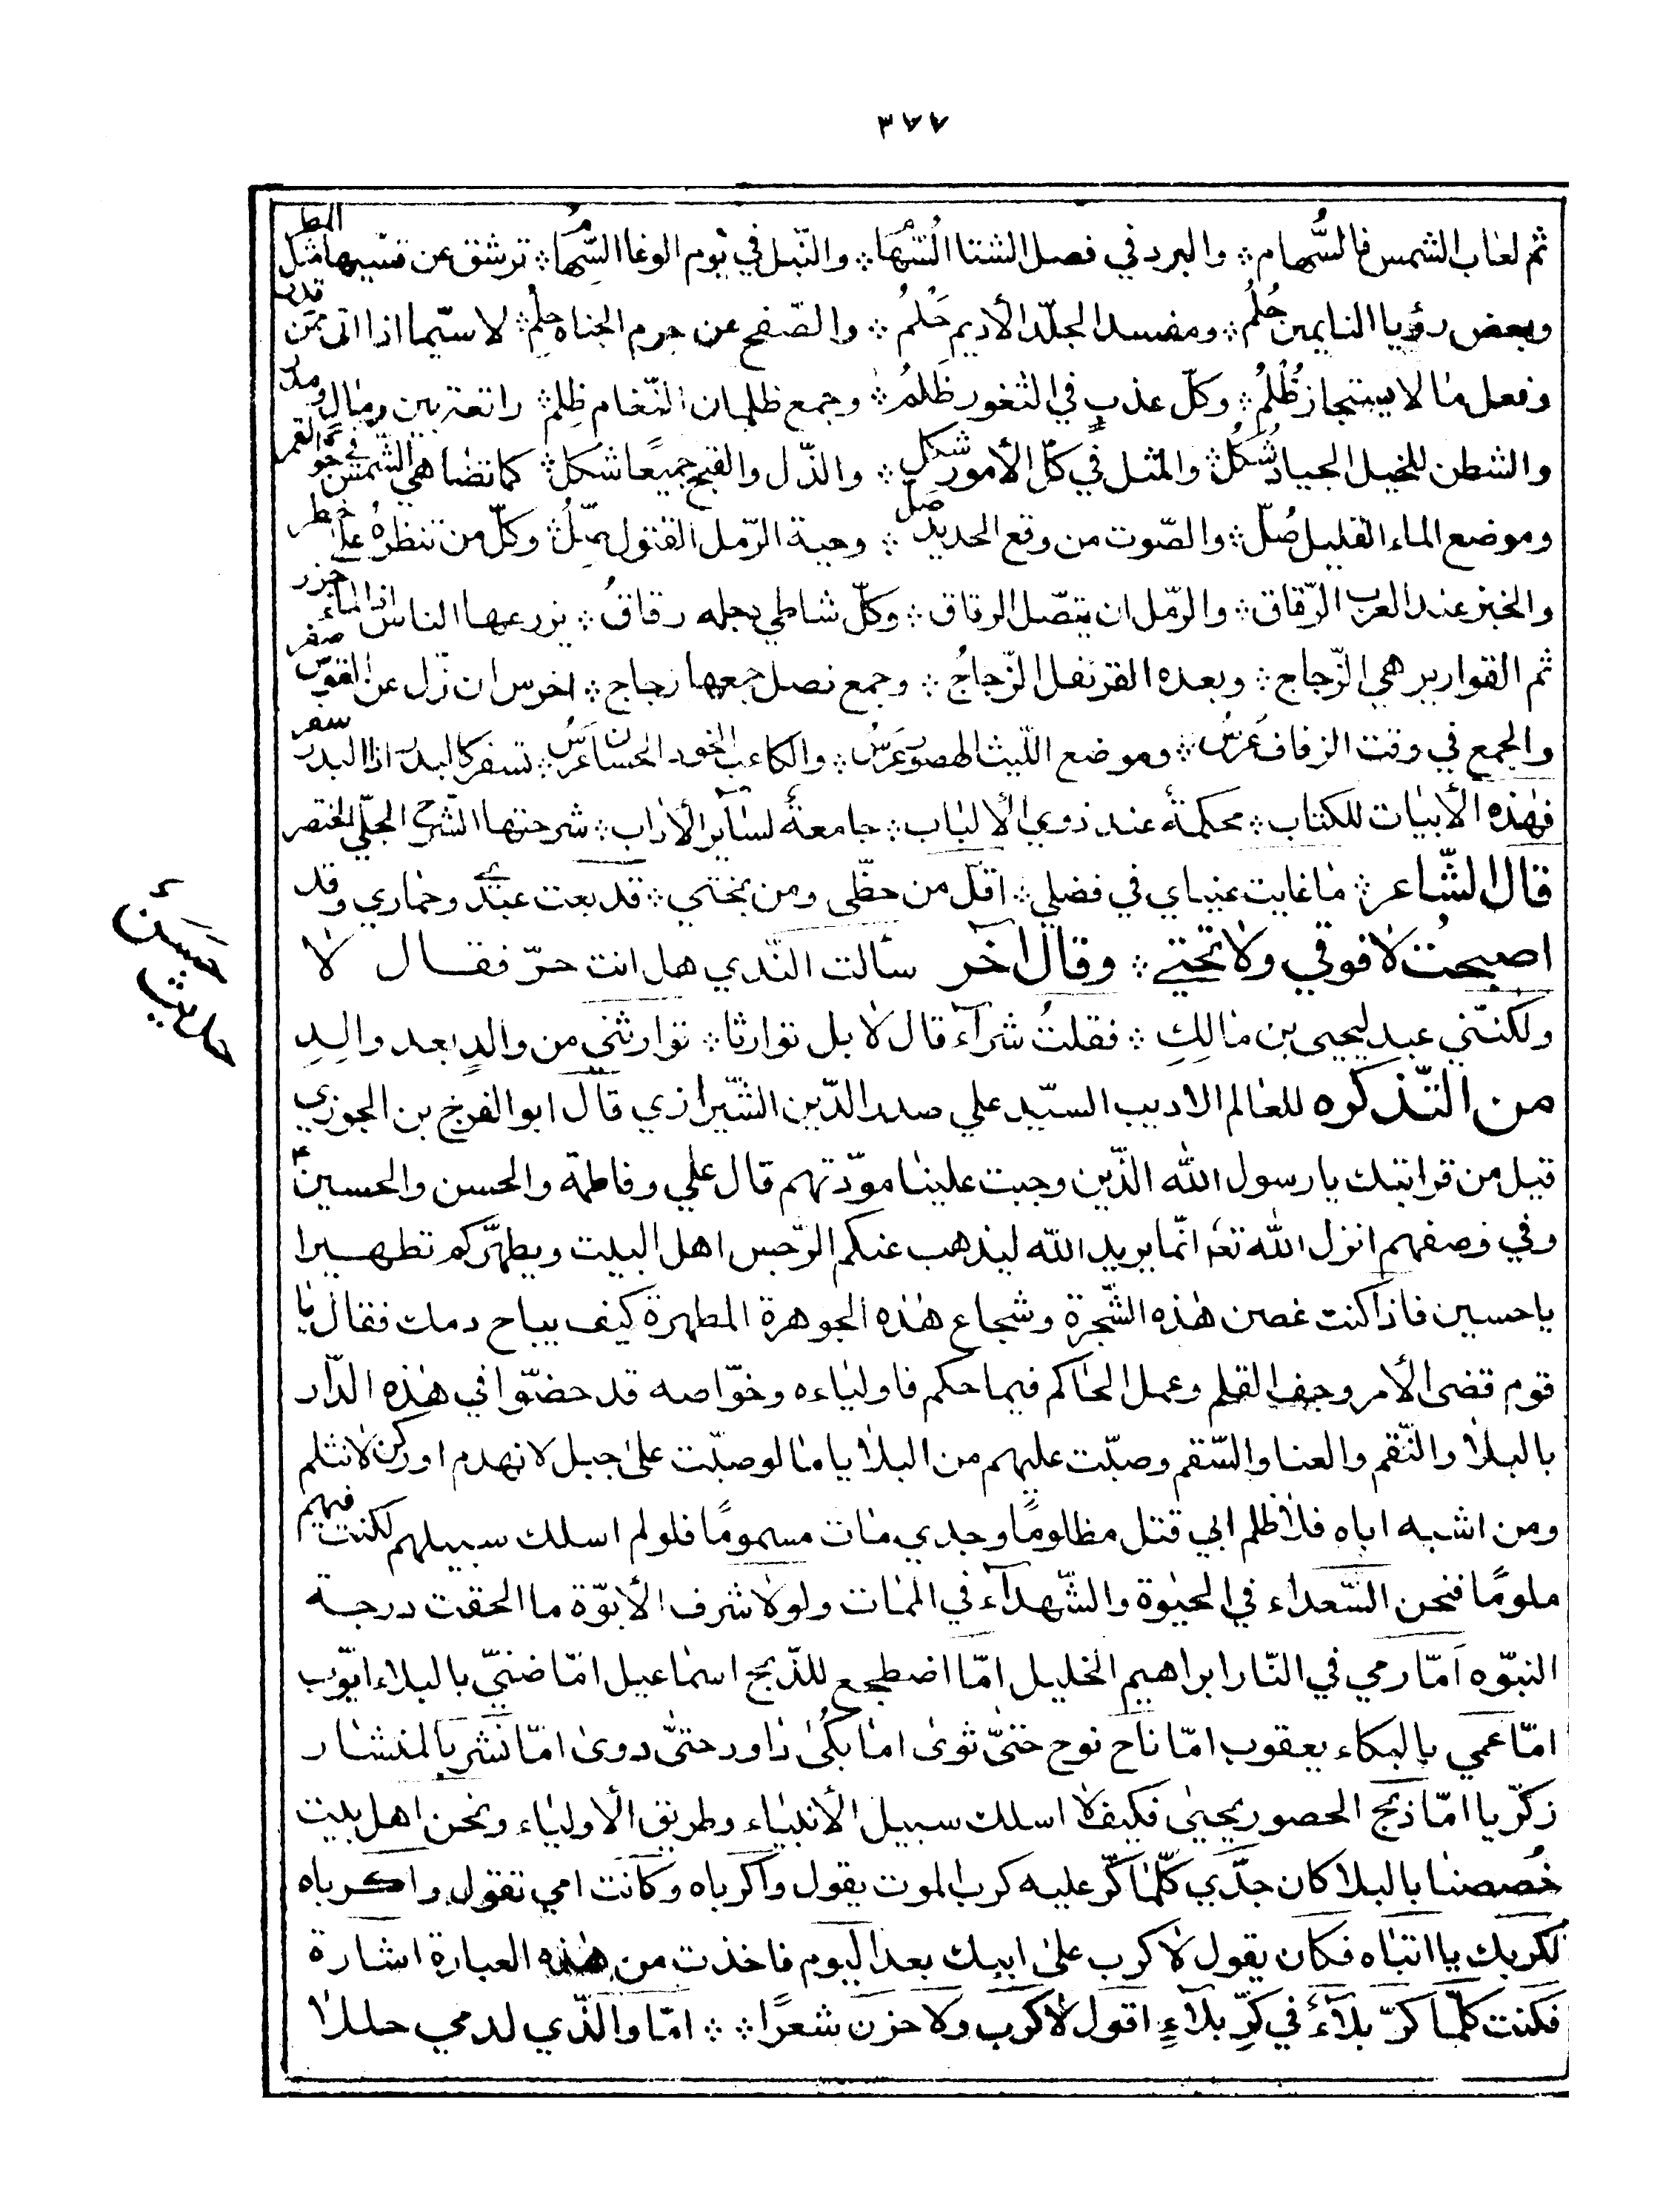 ٣٧٧
ثم لعاب الشمس فالسُّهام ؞ والبرد في فصل الشتا السُّهَامُ ؞ والنّبل في يوم الوغا السِّهامُ ؞ ترشق عن قسّيها مثل المطر
وبعض رؤيا النايمين حُلُمُ ؞ ومفسد الجلد الأديم حَلمُ ؞ والصّفح عن جرم الجناه حِلمٌ ؞ لاسيّما اذا اتى ممّن قدر
وفعل ما لا يستجاز ظُلْمُ ؞ وكلّ عذبٍ في الثغور ظَلمُ ؞ وجمع ظلمان النّعام ظِلم ؞ راتعة بين رمال ومدر
والشطن للخيل الجياد شُكلُ ؞ والمثل في كلّ الأمور شَكل ؞ والذّل والقبح جميعًا شكل ؞ كما تضاهي الشّمس في جو القمر
وموضع الماء القليل صُلّ ؞ والصّوت من وقع الحديد صَلّ ؞ وحية الرّمل القتول صِلُّ ؞ وكلّ من تنظرهُ على خطر
والخبز عند العرب الرّقاق ؞ والرّمل ان يتصّل الرقاق ؞ وكلّ شاطي دجله رقاقُ ؞ يزرعها الناس اذا الماء جزر
ثم القوارير هي الزّجاج ؞ وبعده القرنفل الزّجاجُ ؞ وجمع نصل جمعها زجاج ؞ اخرس ان زلّ عن القوس صفر
والجمع في وقت الزفاف عُرسُ ؞ وموضع اللّيث الهصور عَرسُ ؞ والكاعب الخود الحسان عِرسُ ؞ تسفر كالبدر اذا البدر سفر
فهٰذه الأبيات للكتاب ؞ محكمةٌ عند ذوي الألباب ؞ جامعةٌ لساير الأداب ؞ شرحتها الشّرح الجلّي المختصر
قال الشّاعر ؞ ما عاينت عيناي في فضلي ؞ اقلّ من حظّى ومن بختي ؞ قد بعت عبدي وحماري وقد
اصبحتُ لا فوقي ولا تحتي ؞ وقال آخر سألت النّدي هل انت حرّ فقال لا
ولكنّني عبد ليحيى بن مالِكِ ؞ فقلتُ شرآء قال لا بل توارثا ؞ توارثني من والدٍ بعد والِدِ
من التّذكره للعالم الاديب السيّد علي صدر الدّين الشّيرازي قال ابو الفرج بن الجوزي
قيل من قرابتك يا رسول الله الذّين وجبت علينا مودّتهم قال علي وفاطمة والحسن والحسين ع
وفي وصفهم انزل الله تعٰ انّما يريد الله ليذهب عنكم الرّجس اهل البيت ويطهّركم تطهيرا
يا حسين فاذا كنت غصن هٰذه الشّجرة وشجاع هٰذه الجوهرة المطهرة كيف يباح دمك فقال يا
قوم قضى الأمر وجف القلم وعمل الحاكم فيما حكم فاولياءه وخوّاصه قد حضوّا في هٰذه الدّار
بالبلا والنّقم والعنا والسّقم وصبّت عليهم من البلايا ما لو صبّت علىٰ جبل لانهدم او ركن لانثلم
ومن اشبه اباه فلا ظلم ابي قتل مظلومًا وجدي مات مسمومًا فلو لم اسلك سبيلهم لكنت فيهم
ملومًا فنحن السّعداء في الحيٰوة والشّهدآء في الممات ولولا شرف الأبوّة ما الحقت درجة
النبوّه اَمّا رمي في النّار ابراهيم الخليل امّا اضطجع للذّبح اسماعيل امّا ضنيّ بالبلاء ايّوب
امّا عمي بالبكاء يعقوب امّا ناح نوح حتىّٰ ثوىٰ اما بكىٰ داود حتىّٰ دوىٰ امّا نشر بالمنشار
زكرّيا امّا ذبح الحصور يحيىٰ فكيف لا اسلك سبيل الأنبياء وطريق الأولياء ونحن اهل بيت
خُصصنا بالبلا كان جدّي كلّما كرّ عليه كرب الموت يقول واكرباه وكانت امي تقول واكرباه
لكربك يا ابتاه فكان يقول لا كرب علىٰ ابيك بعد اليوم فاخذت من هٰذه العبارة اشارة
فكنت كلّما كرّ بلآءٌ في كرّ بلآءٍ اقول لا كرب ولا حزن شعرًا ؞ ؞ امّا والّذي لدمي حللا
حديث حَسَنٌ